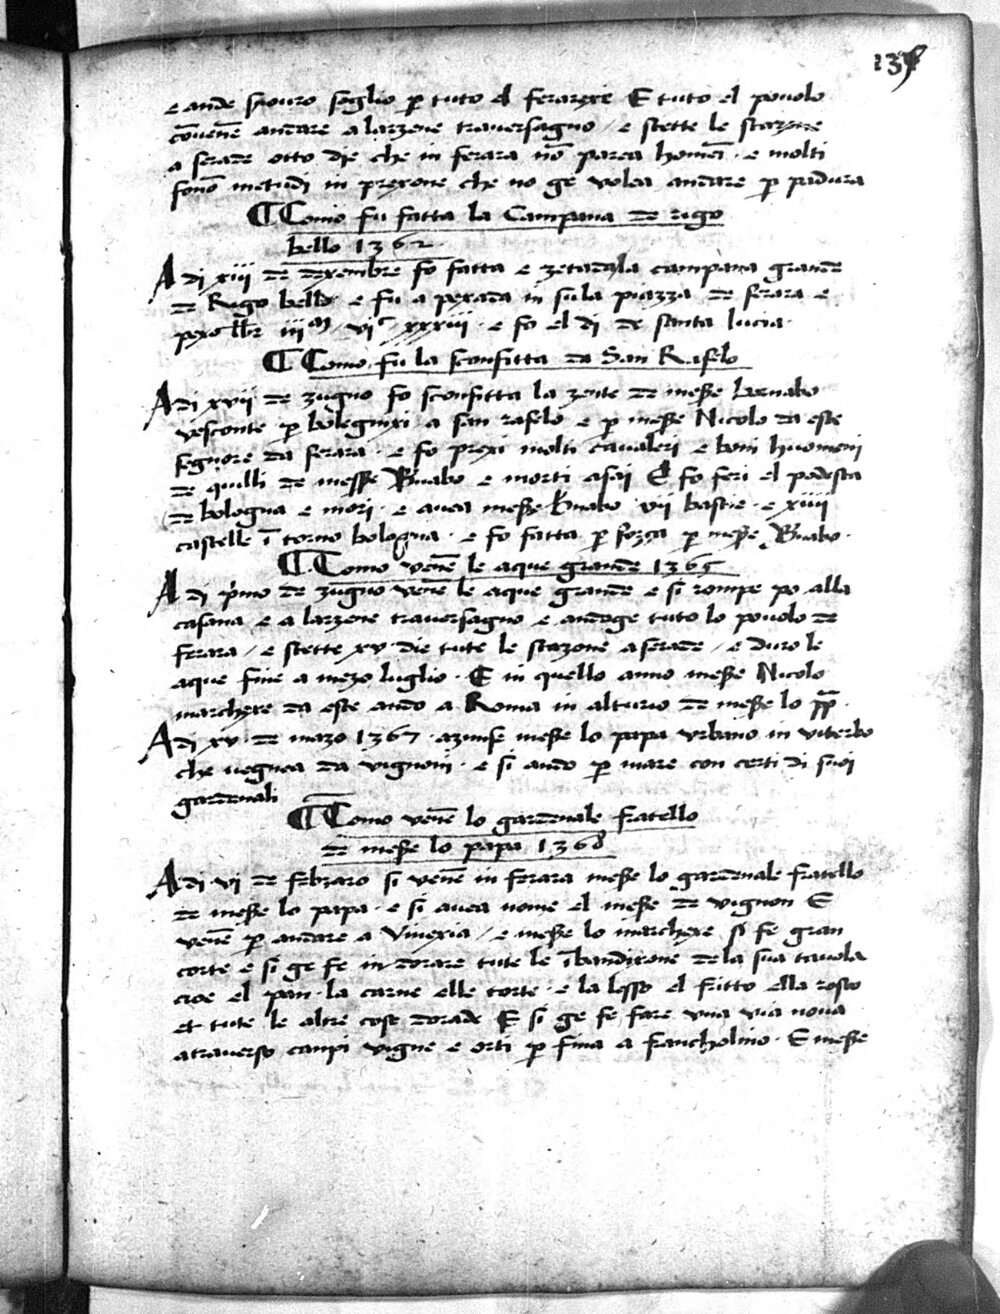 135
e ande sp̱ouro soglio ꝑ tuto el ferarexe E tuto el pouolo
cōuenē andare a larzene trauersagno / e stette le stazone
a serade otto die che in ferara nō parea homeī · e molti
fono metudi in prexone che no ge volea andare ꝑ padura
¶ Como fu fatta la Campana de rigo
bello 1362
A di xiii de dexembre fo fatta e zetada la campana grande
de Rigo bello e fu a pexada in su la piazza de ferara e
pexo llbr iiiᵐ viᶜ xxxiii · e fo el di de santa lucia ·
¶ Como fu la sconfitta da San Rafelo
A di xvii de zugno fo sconfitta la zente de messe bernabo
vesconte ꝑ bolegnixi a san rafelo e ꝑ messe Nicolo da este
segnore da ferara · e fo prexi molti cavaleri e boni huomeni
de quilli de messe Bnabo e morti asai E fo feri el podesta
de bologna e mori · e auea messe bnabo vii bastie · e xiiii
castelle ī torno bologna · e fo fatta ꝑ forza ꝑ messe Bnabo ·
¶ Como venē le aque grande 1365
A di p̄mo de zugno venē le aque grande e si rompe po alla
casana e a larzene trauersagno e andoge tuto lo pouolo de
ferara / e stette xv die tute le stazone a serade / e duro le
aque fine a mezo luglio · E in quello anno messe Nicolo
marchexe da este ando a Roma in alturio de messe lo pp̄ ·
A di xv · de mazo 1367 · azunse messe lo papa vrbano in viterbo
che uegnea da vignoni · e si ando ꝑ mare con certi di suoi
gardenali
¶ Como venē lo gardenale fratello
de messe lo papa 1368
A di vi de febraro si venē in ferara messe lo gardenale fratello
de messe lo papa · e si auea nome el messe de vignon E
venē ꝑ andare a Vinexia / e messe lo marchexe si fe gran
corte e si ge fe in dorare tute le ībandixone de la sua tauola
cioe el pan · la carne elle torte · e la lesso el fritto ella rosto
et tute le altre cose dorade E si ge fe fare vna via noua
atrauerso canpi vigne e orti ꝑ fina a francholino · E messe